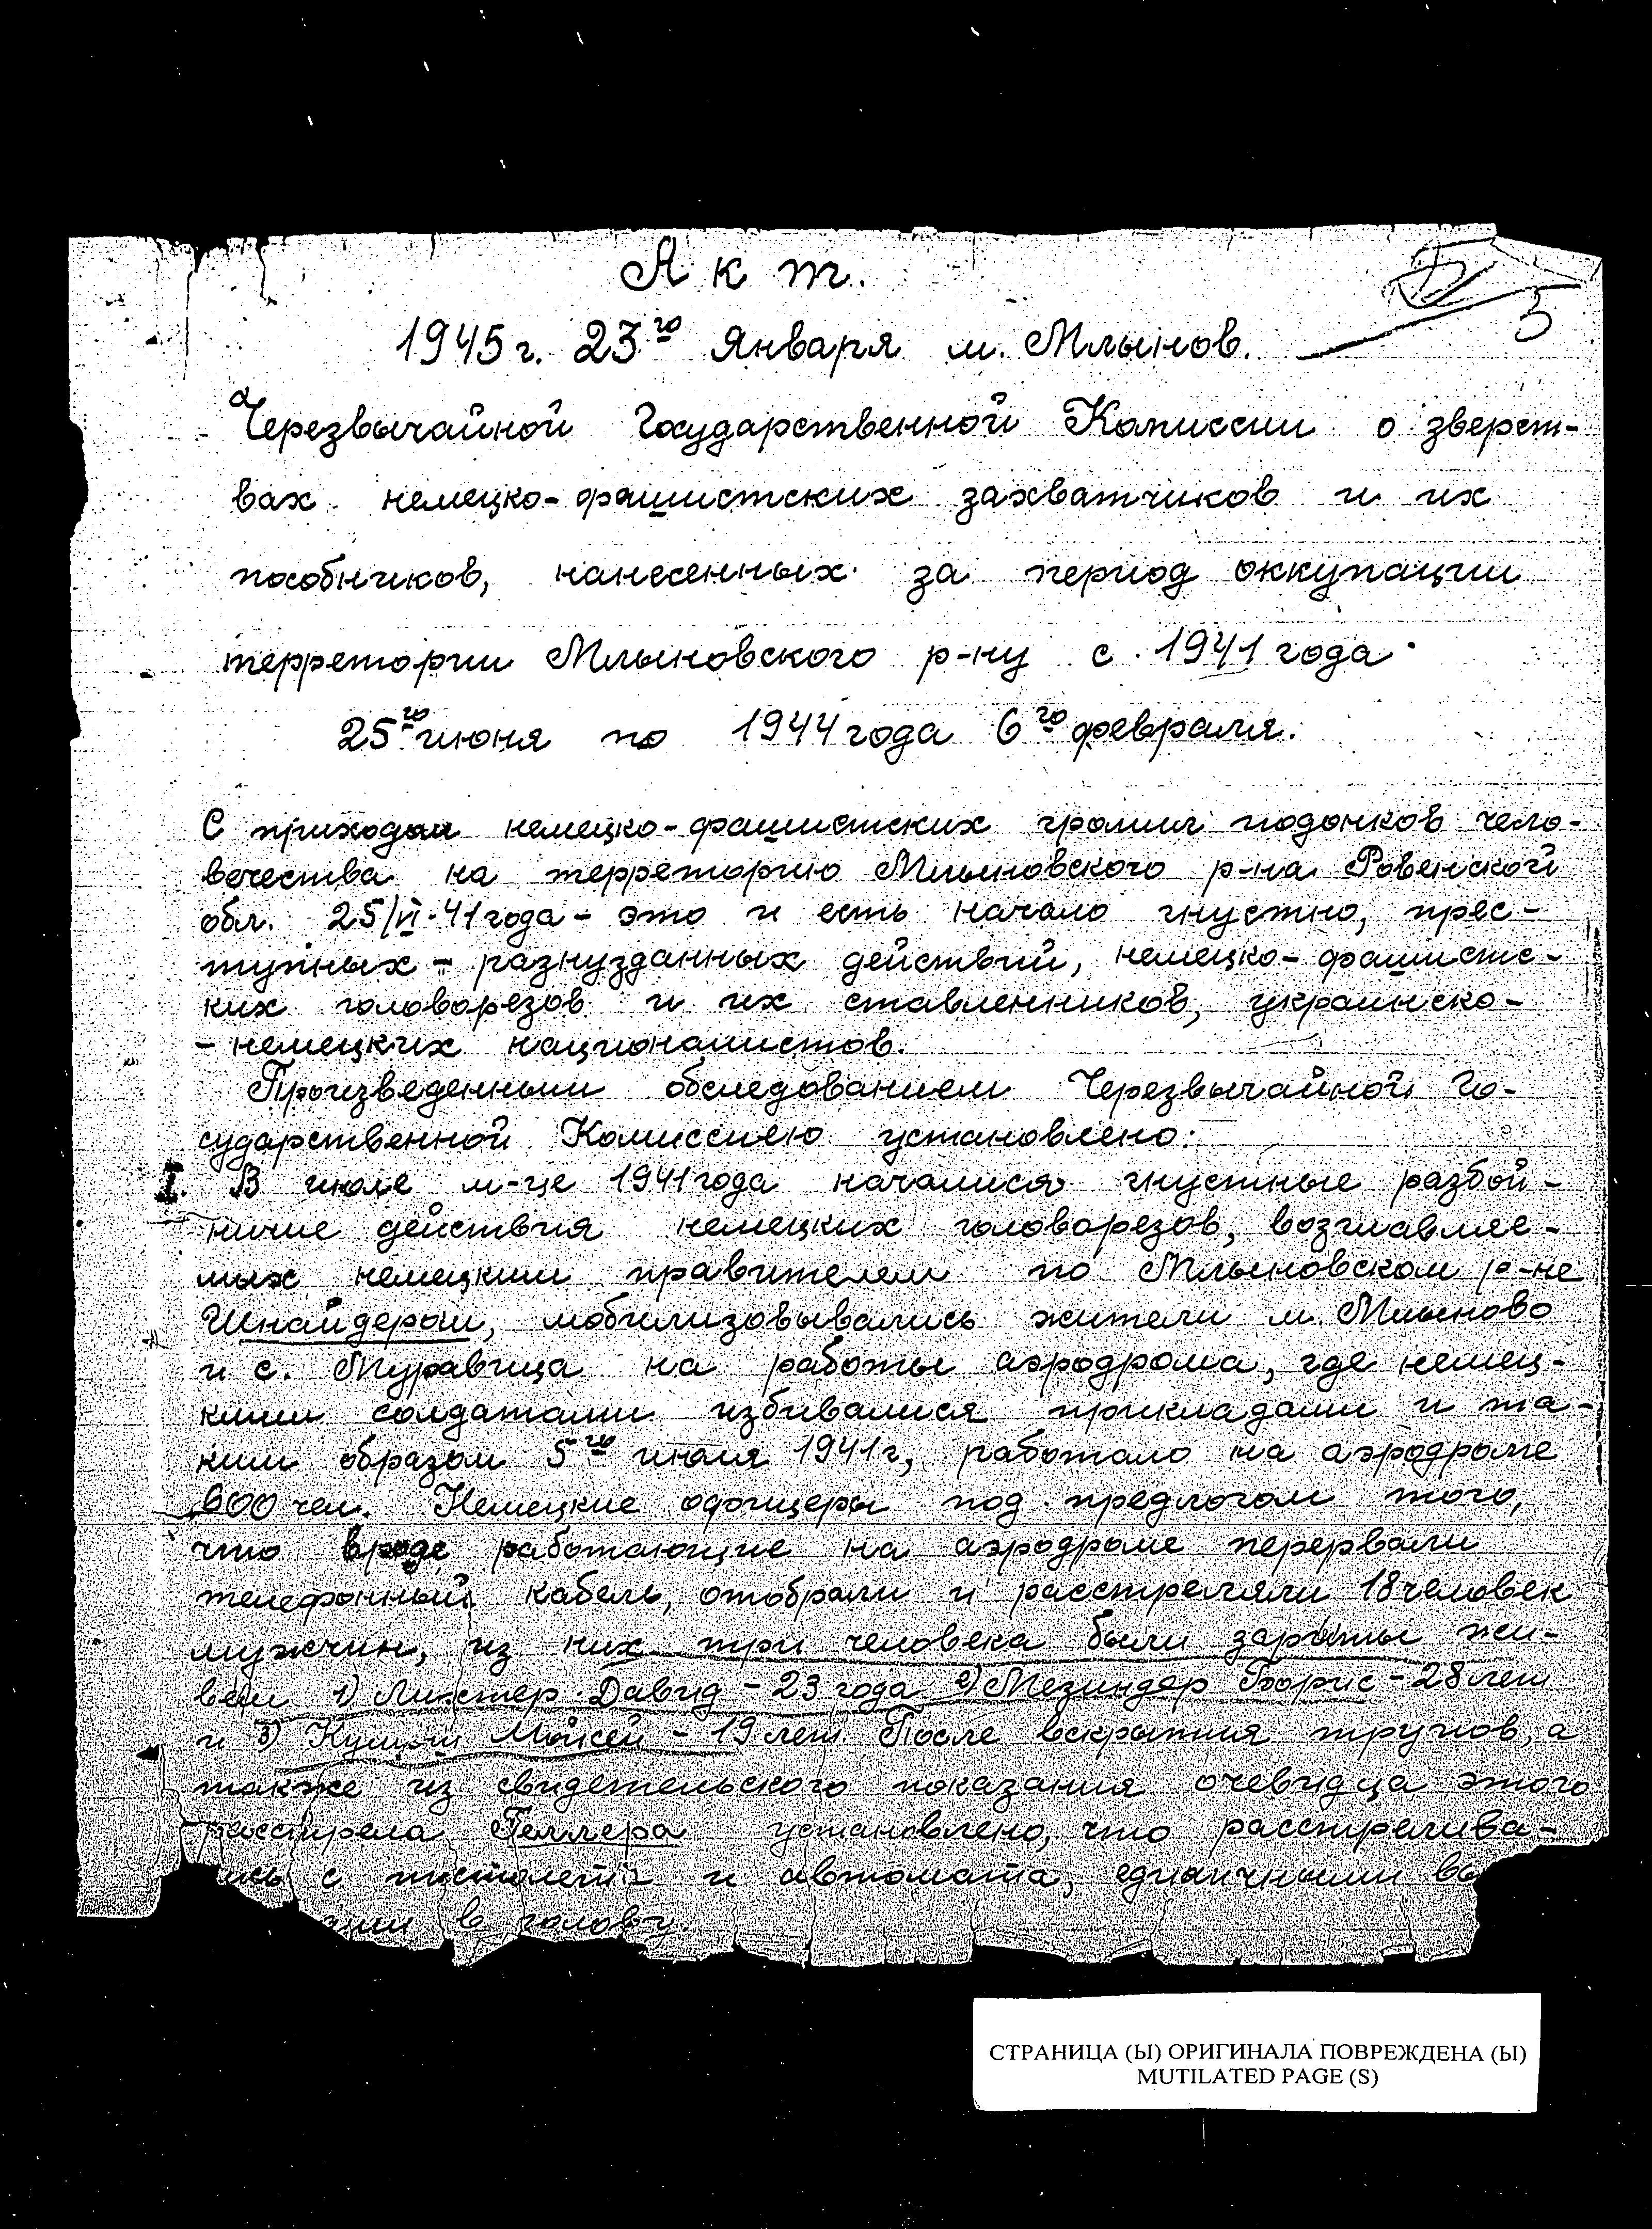 Акт.
5
1945 г. 23го Января м. Млынов.
Черезвычайной Государственной Комиссии о зверст-
вах немецко-фашистских захватчиков и их
пособников, нанесенных за период оккупации
терретории Млыновского р-ну с 1941 года
25го июня по 1944 года 6го февраля.
С приходом немецко-фашистских громил подонков чело-
вечества на терреторию Млыновского р-на Ровенской
обл. 25/VI-41 года - это и есть начало гнустно, прес-
тупных - разнузданных действий, немецко-фашистс-
ких головорезов и их ставленников, украинско-
- немецких националистов.
Произведенным обследованием Черезвычайной Го-
сударственной Комиссиею установлено:
I. В июле м-це 1941 года начались гнустные разбой-
ничие действия немецких головорезов, возглавляе-
мых немецким правителем по Млыновском р-не
Шнайдером, мобилизовывались жители м. Млыново
и с. Муравица на работы аэродрома, где немец-
кими солдатами избивалися прикладами и та-
ким образом 5го июля 1941 г, работало на аэродроме
600 чел. Немецкие офицеры под предлогом того,
что вроде работающие на аэродроме перервали
телефонный кабель, отобрали и расстреляли 18 человек
мужчин, из них три человека были зарыты жи-
вем 1) Ликстер Давид - 23 года 2) Мезиндер Борис - 28 лет
и 3) Мойсей - 19 лет. После вскрытия трупов, а
также из свидетельского показания очевидца этого
расстрела Геллера установлено, что расстрелива-
ись с пистолета и автомата, единичными вы
ами в голову.
СТРАНИЦА (Ы) ОРИГИНАЛА ПОВРЕЖДЕНА (Ы)
MUTILATED PAGE (S)